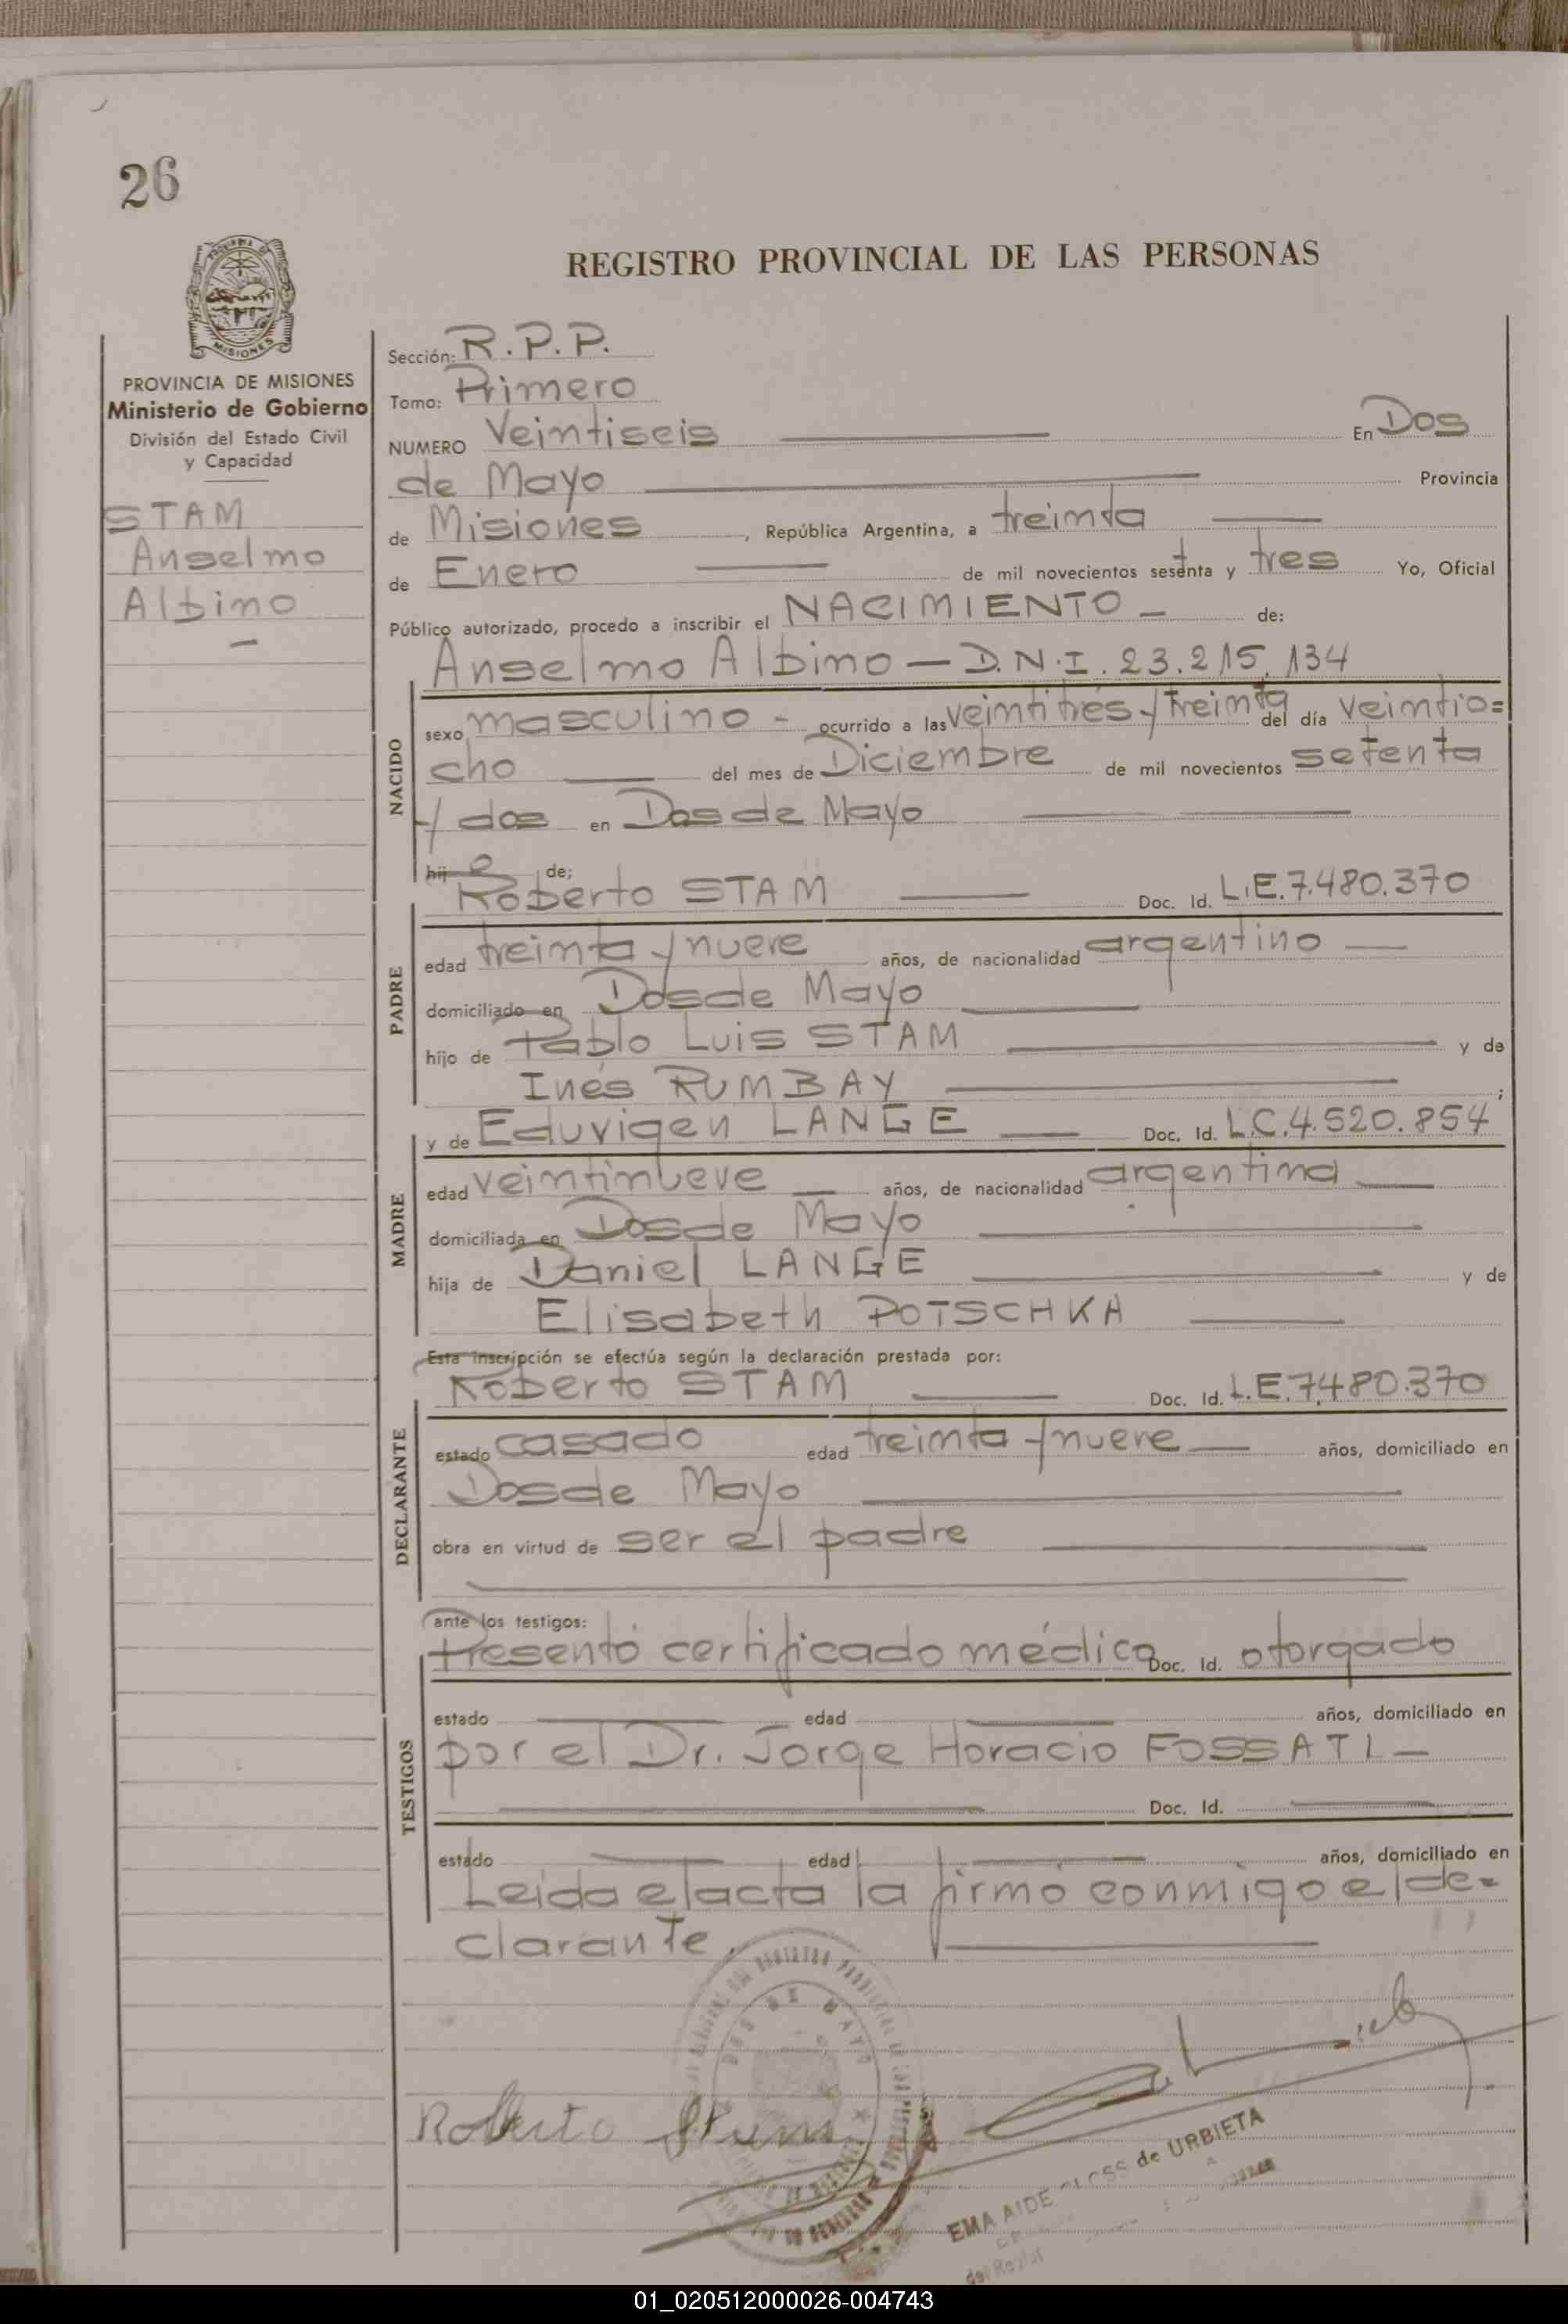 26
REGISTRO PROVINCIAL DE LAS PERSONAS
MISIONES
PROVINCIA DE MISIONES
Ministerio de Gobierno
División del Estado Civil
y Capacidad
STAM
Anselmo
Albino
Sección: R.P.P.
Tomo: Primero
NUMERO Veintiseis En Dos
de Mayo Provincia
de Misiones, República Argentina, a treinta
de Enero de mil novecientos sesenta y tres Yo, Oficial
Público autorizado, procedo a inscribir el NACIMIENTO — de:
Anselmo Albino — D.N.I. 23.215.134
NACIDO
sexo masculino - ocurrido a las veintitrés y treinta del día veintio=
cho del mes de Diciembre de mil novecientos setenta
y dos en Dos de Mayo
hijo de;
Roberto STAM Doc. Id. L.E.7.480.370
PADRE
edad treinta y nueve años, de nacionalidad argentino
domiciliado en Dos de Mayo
hijo de Pablo Luis STAM y de
Inés RUMBAY ;
MADRE
y de Eduvigen LANGE Doc. Id. L.C.4.520.854
edad veintinueve años, de nacionalidad argentina
domiciliada en Dos de Mayo
hija de Daniel LANGE y de
Elisabeth POTSCHKA
Esta inscripción se efectúa según la declaración prestada por:
Roberto STAM Doc. Id. L.E.7.480.370
DECLARANTE
estado casado edad treinta y nueve años, domiciliado en
Dos de Mayo
obra en virtud de ser el padre
ante los testigos:
Presentó certificado médico Doc. Id. otorgado
TESTIGOS
estado edad años, domiciliado en
por el Dr. Jorge Horacio FOSSATI —
Doc. Id.
estado edad años, domiciliado en
Leida el acta la firmó conmigo el de=
clarante.
DOS DE MAYO
Roberto Stam
EMA AIDE de URBIETA
01_020512000026-004743